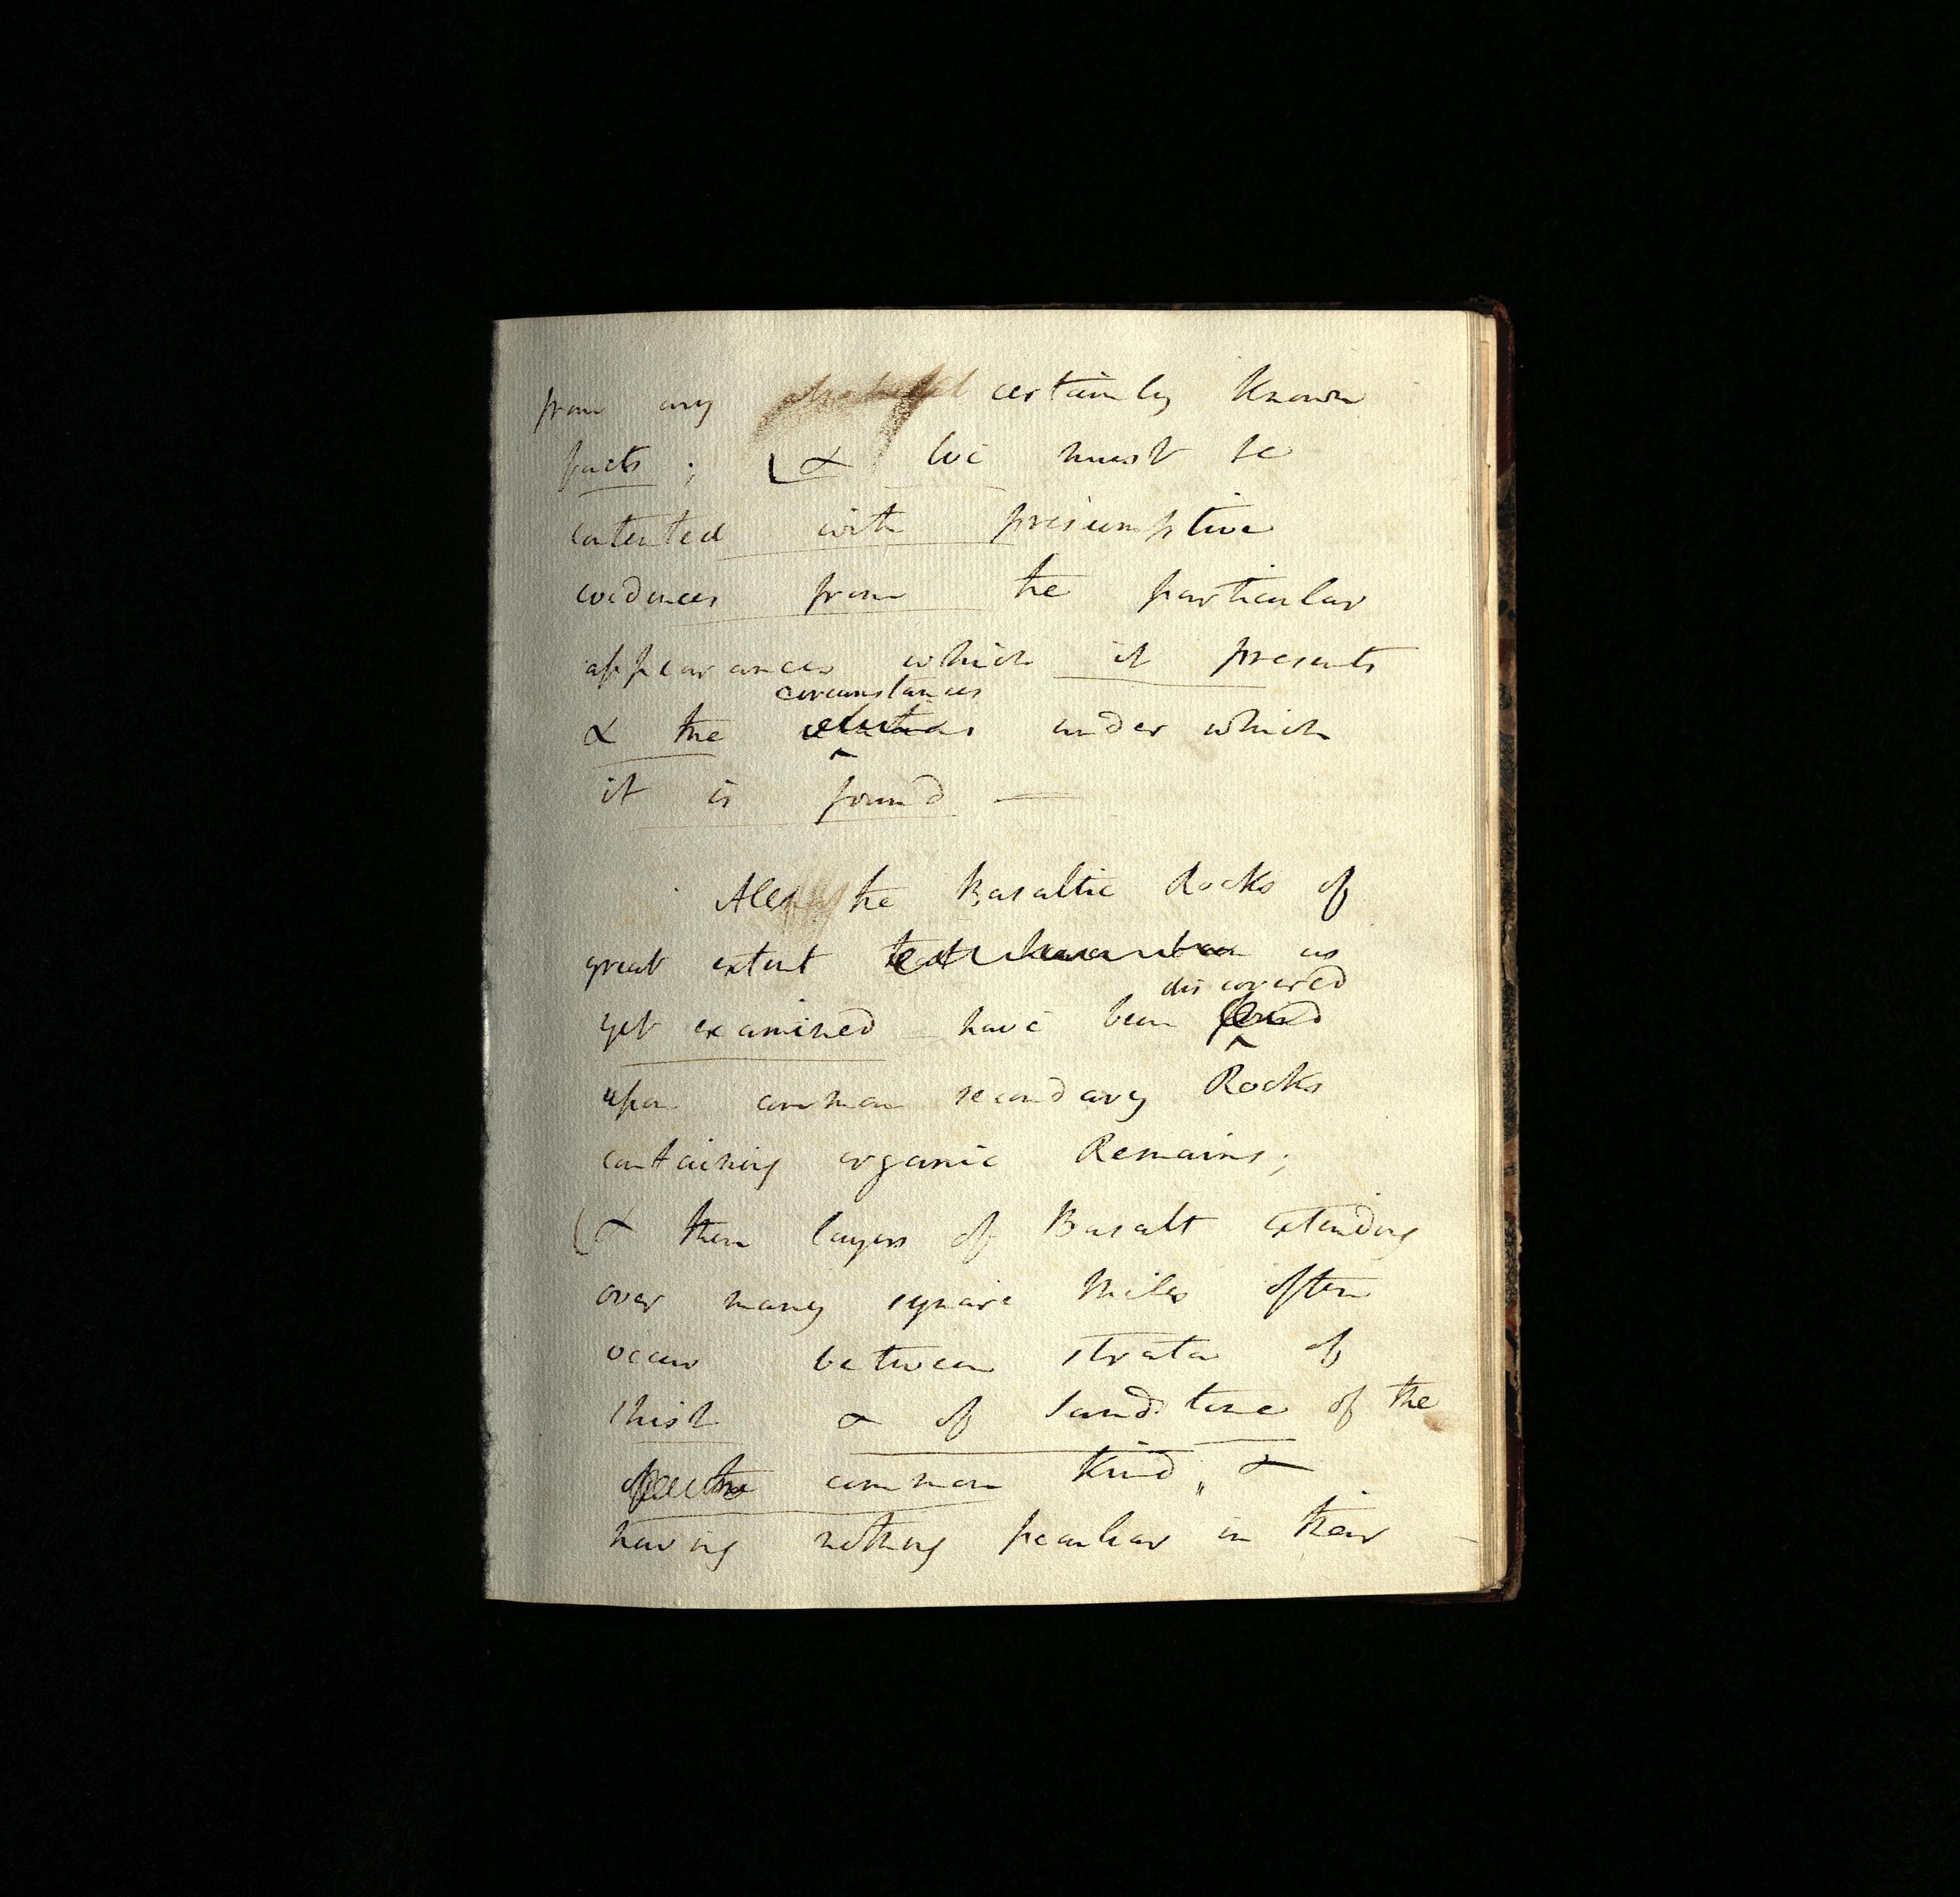 from any certainly known
facts; & we must be
contented with presumptive
evidences from the particular
appearances which it presents
circumstances
& the under which
it is found —
All the Basaltic Rocks of
great extent as
discovered
yet examined have been found
upon common secondary Rocks
containing organic Remains;
(& then layers of Basalt extending
over many square Miles often
occur between strata of
shist & of Sandstone of the
common kind, &
having nothing peculiar in their